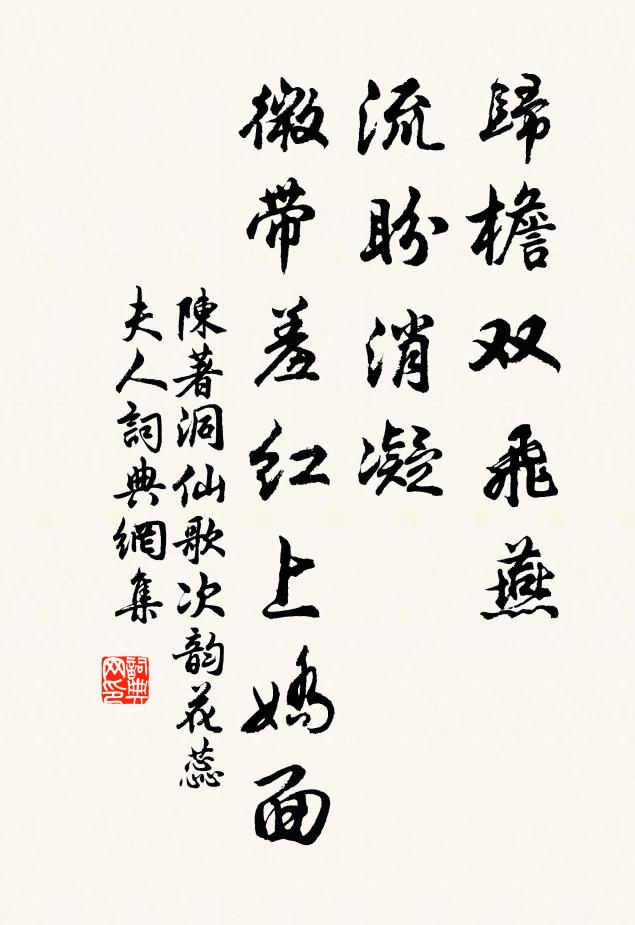 歸檐双飛燕
流盼消凝
微带羞红上嬌面
陳著洞仙歌次韵花蕊
夫人詞典網集
詞典网印